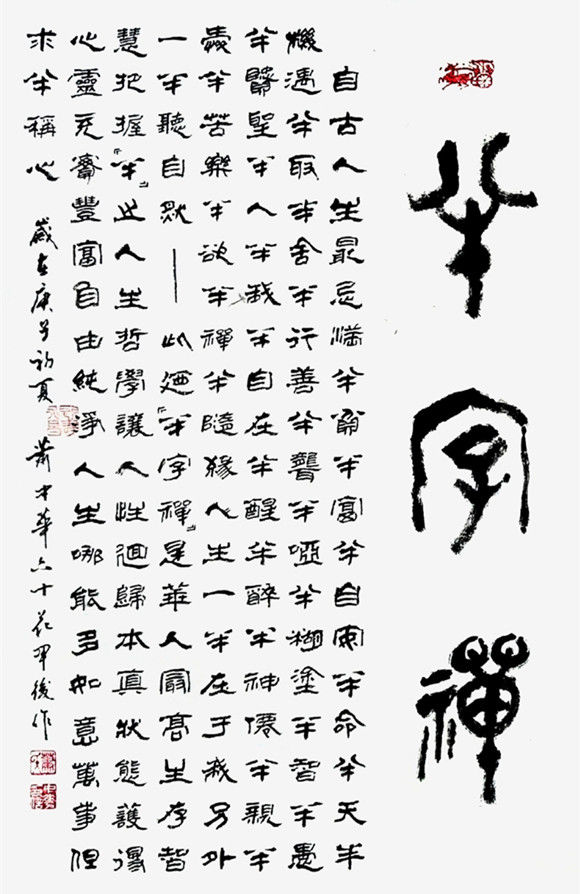 半字禪
自古人生最忌滿半貧半富半自安半命半天半
機遇半取半舍半行善半聾半啞半糊塗半智半愚
半賢聖半人半我半自在半醒半醉半神僊半親半
愛半苦樂半欲半禪半隨緣人生一半在于我另外
一半聽自然——此廼『半字禪』是華人最高生存智
慧把握『半』此人生哲學讓人性迴歸本真狀態獲得
心靈充實豐富自由純淨人生哪能多如意萬事但
求半稱心 歲在庚子初夏 蕭才華六十花甲後作